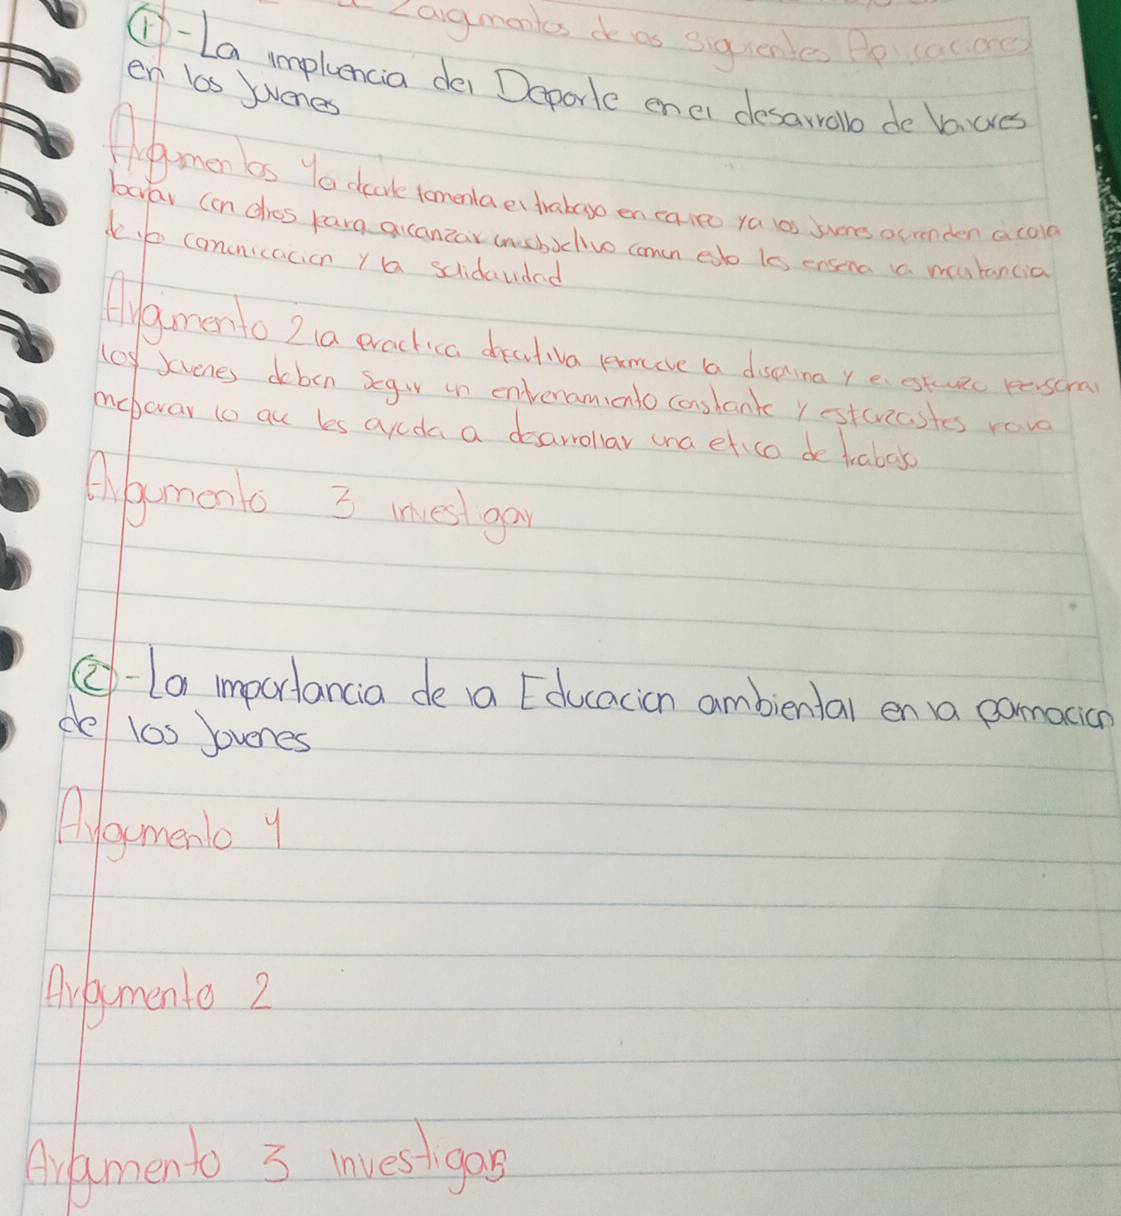 2 argmentos de as siguientes Aplicaciones
①-La implvencia del Deporte en el desarrollo de Valores
en los Jovenes
Argumentos 1 a deporte fomenta el trabaso en equipo ya los Jovenes aprenden a cola
borar con otros para alcanzar un objectivo comun esto les enseña la
comunicacion y la solidaridad
Argumento 2 la practica deportiva promueve la displina y el esfuerzo personal
los Jovenes deben segir un entrenamiento constante y estorzastes para
meporar lo que les ayuda a desarrollar una etico de trabaso
Argumento 3 investigar
②-La importancia de la Educacion ambiental en la pormacion
de los Jovenes
Argumento 1
Argumento 2
Argumento 3 investigar